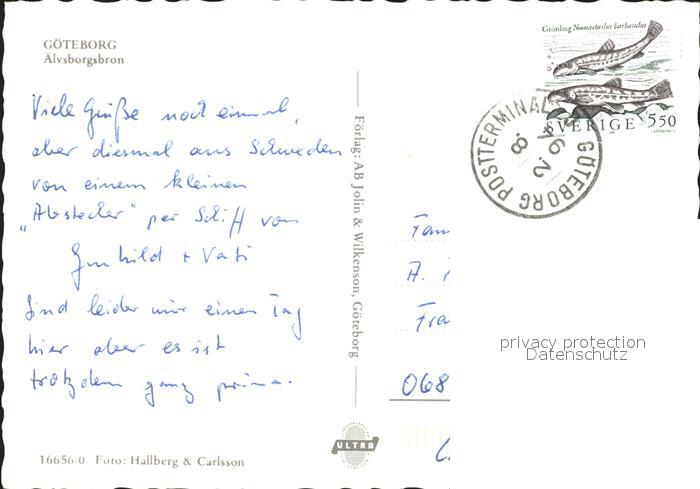 GÖTEBORG
Älvsborgsbron
Viele Grüße noch einmal,
aber diesmal aus Schweden
von einem kleinen
„Abstecher" per Schiff von
Gunhild + Vati
Sind leider nur einen Tag
hier aber es ist
trotzdem ganz prima.
16656-0 Foto: Hallberg & Carlsson
Förlag: AB Jolin & Wilkenson, Göteborg
ULTRA
Grönling Noemacheilus barbatulus
SVERIGE 550
GÖTEBORG POSTTERMINAL
Fam
A.
Fra
068
privacy protection
Datenschutz